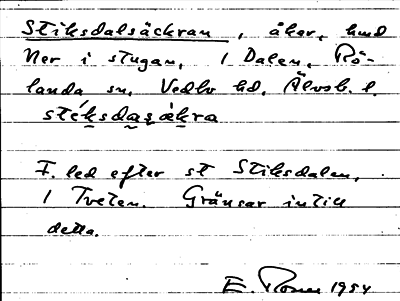 Stiksdalsäckran, åker, hmd
Ner i stugan, 1 Dalen, Rö-
landa sn, Vedbo hd, Älvsb. l.
stéksdaʂàkra
F. led efter st Stiksdalen,
1 Tveten. Gränsar intill
detta.
E. 1954